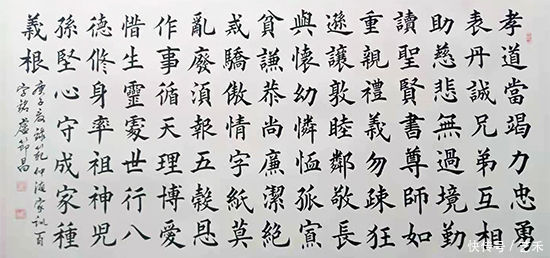 孝道當竭力忠勇
表丹誠兄弟互相
助慈悲無過境勤
讀聖賢書尊師如
重親禮義勿疎狂
遜讓敦睦鄰敬長
與懷幼憐恤孤寡
貧謙恭尚廉潔絕
戒驕傲情字紙莫
亂廢須報五穀恩
作事循天理博愛
惜生靈處世行八
德修身率祖神兒
孫堅心守成家種
義根
庚子春錄范仲淹家訓百
字銘 盧節昌
快传号/艺禾